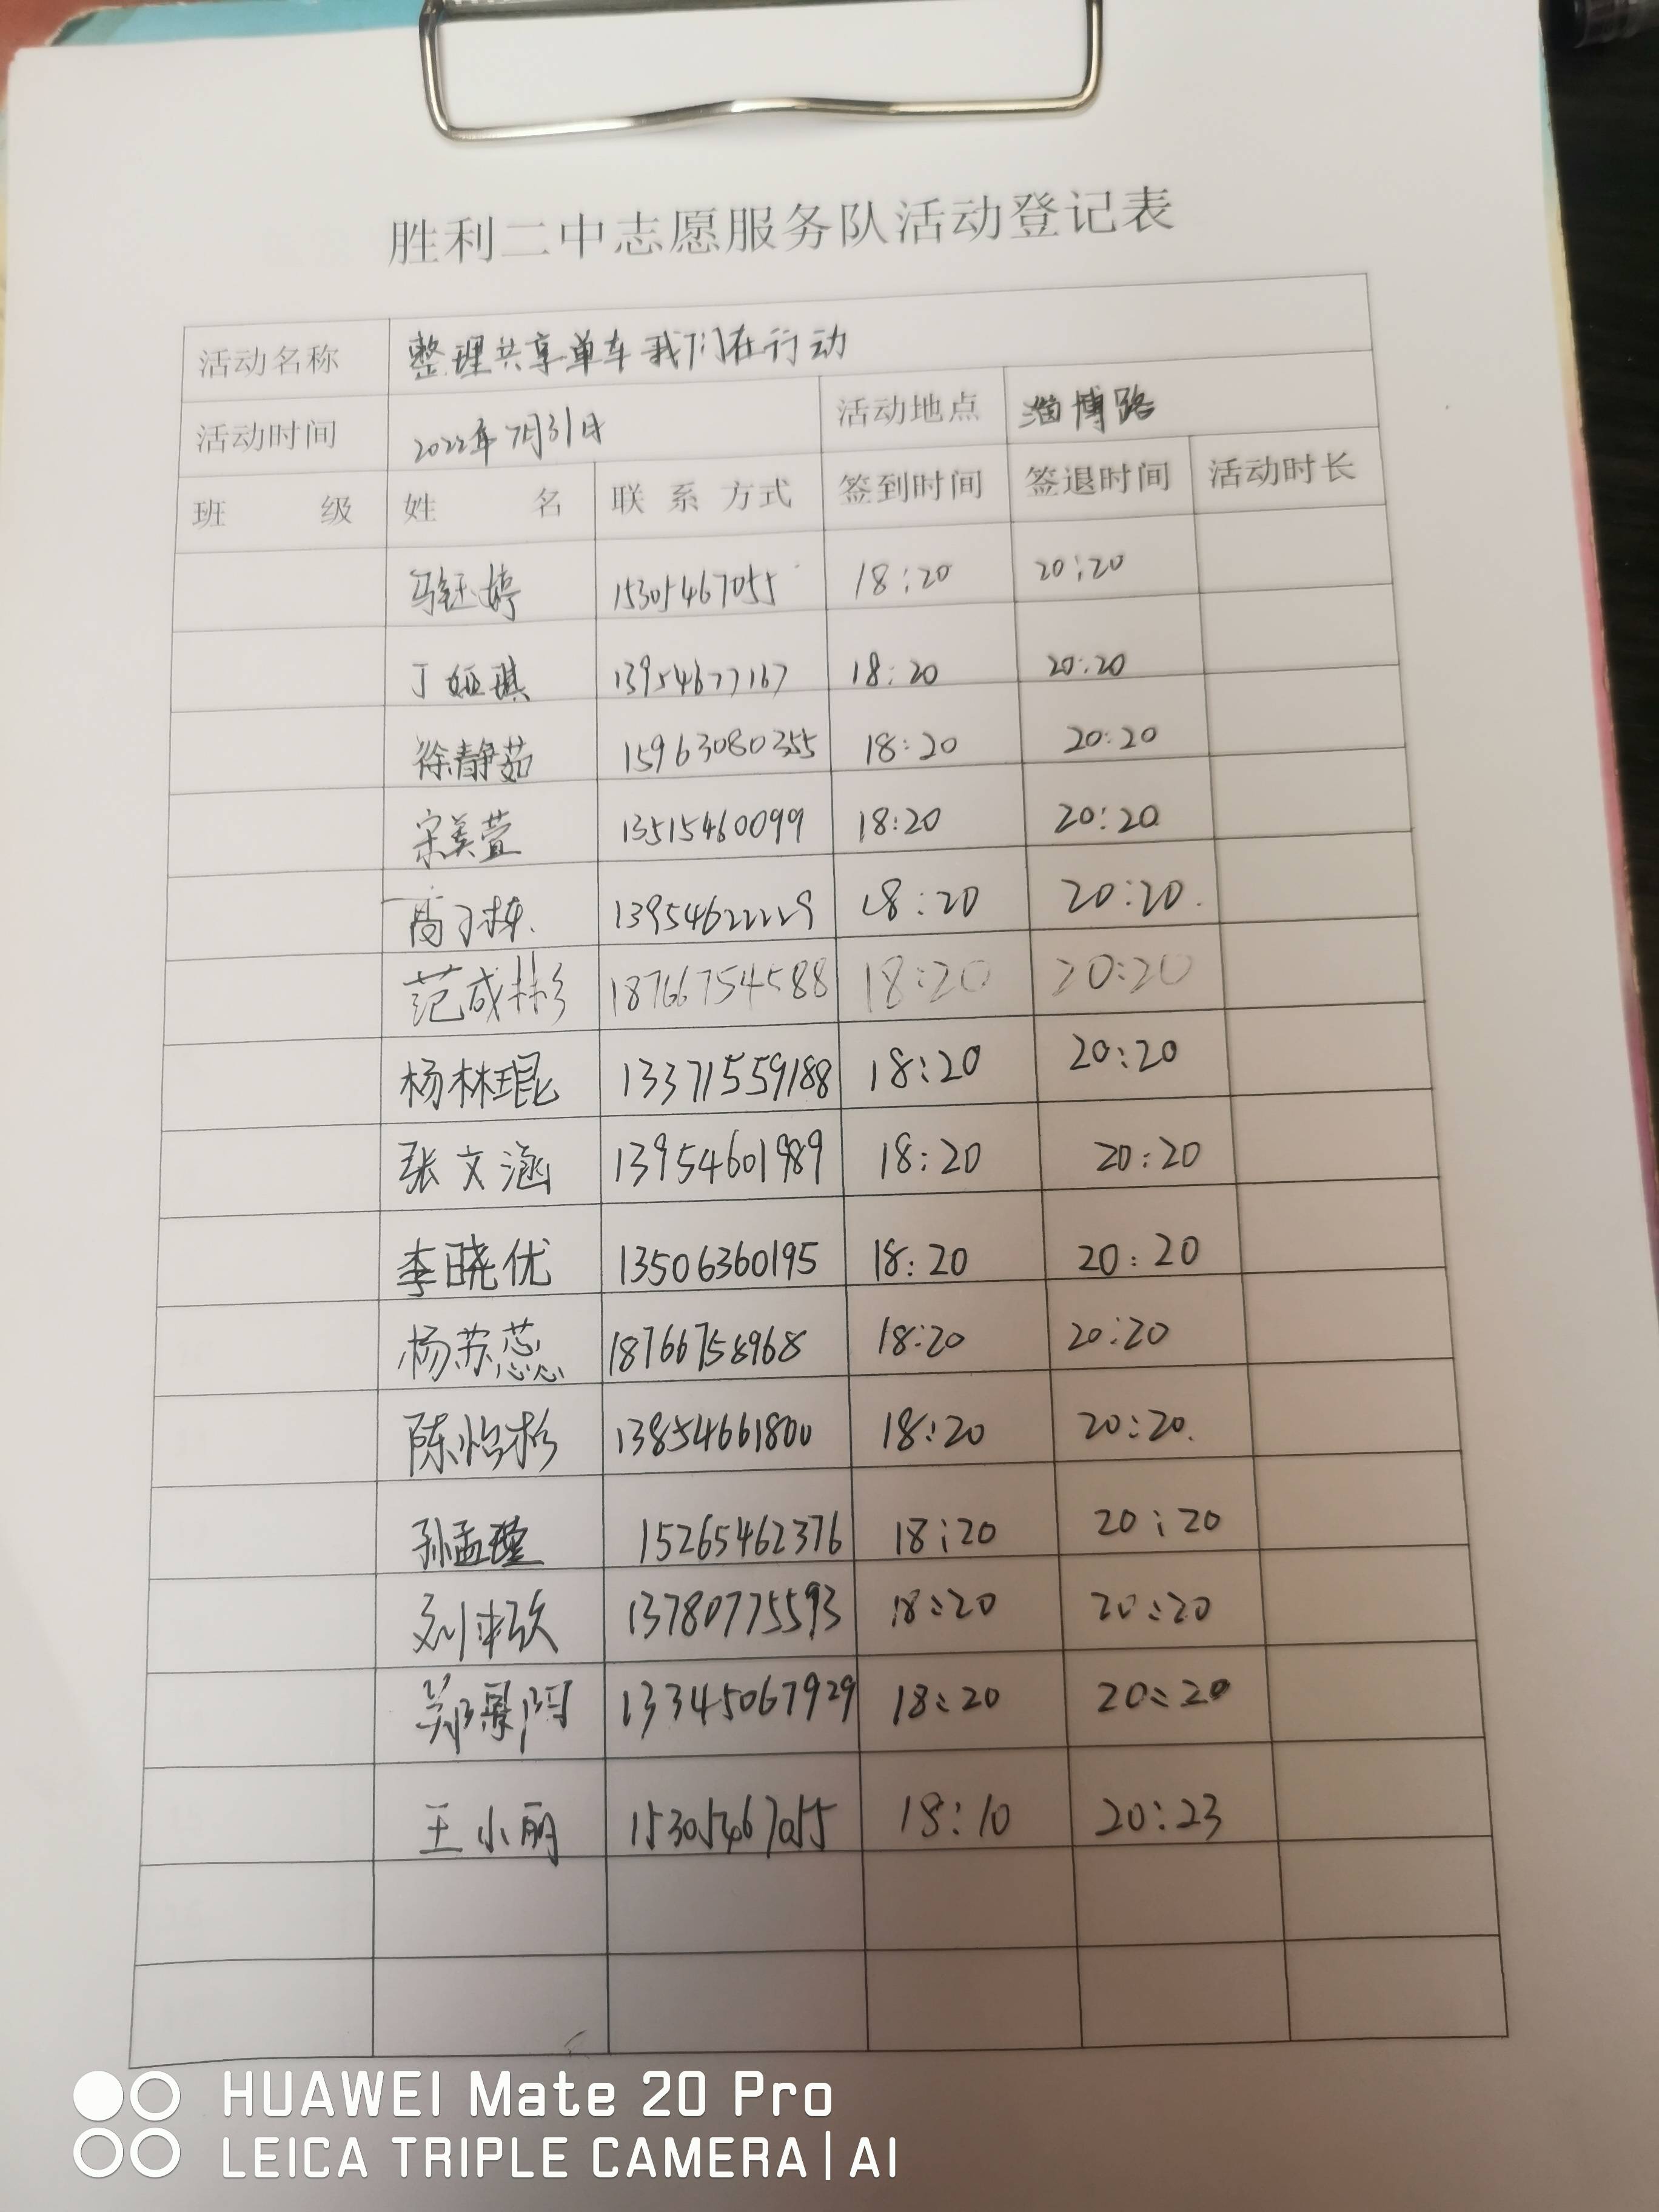 胜利二中志愿服务队活动登记表
活动名称 整理共享单车我们在行动
活动时间 2022年7月31日 活动地点 淄博路
班 级 姓 名 联系方式 签到时间 签退时间 活动时长
马钰婷 15305467055 18:20 20:20
丁娅琪 13954677167 18:20 20:20
徐静茹 15963080355 18:20 20:20
宋美萱 13515460099 18:20 20:20
高子栋 13954622229 18:20 20:20
范成彬 18766754588 18:20 20:20
杨林琨 13371559188 18:20 20:20
张文涵 13954601989 18:20 20:20
李晓优 13506360195 18:20 20:20
杨苏蕊 18766758968 18:20 20:20
陈怡杉 13854661800 18:20 20:20
孙孟瑾 15265462376 18:20 20:20
13780775593 18:20 20:20
13345067929 18:20 20:20
王小丽 15305467055 18:10 20:23
HUAWEI Mate 20 Pro
LEICA TRIPLE CAMERA | AI